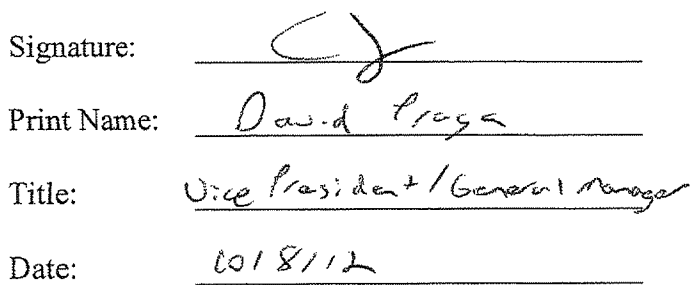 Signature:
Print Name: David Praga
Title: Vice President / General Manager
Date: 10/8/12